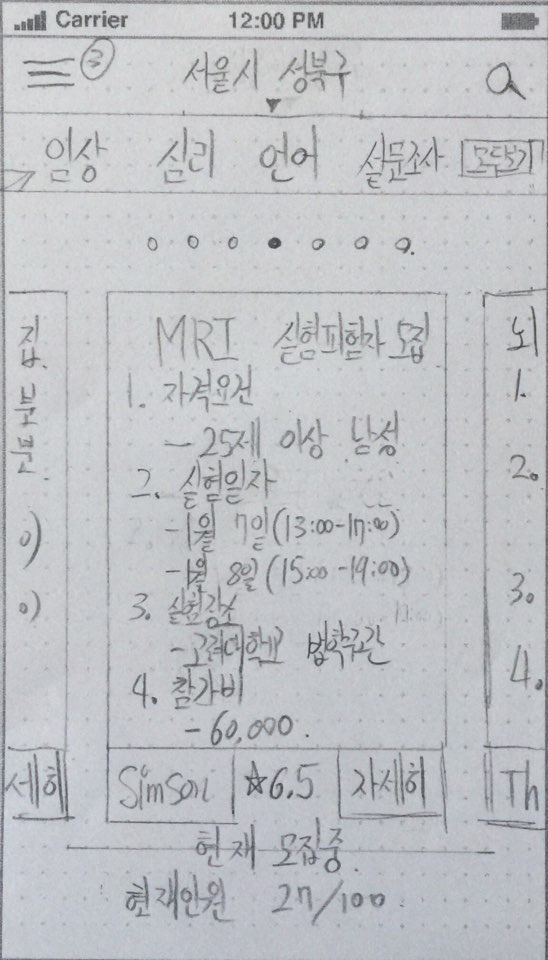 Carrier 12:00 PM
3 서울시 성북구
임상 심리 언어 설문조사 모두보기
MRI 실험피험자 모집
1. 자격요건
- 25세 이상 남성
2. 실험일자
- 1월 7일 (13:00-17:00)
- 1월 8일 (15:00-19:00)
3. 실험장소
- 고려대학교 법학구관
4. 참가비
- 60,000.
세히
Simson ☆6.5 자세히
뇌
1.
2.
3.
4.
Th
현재 모집중
현재인원 27/100